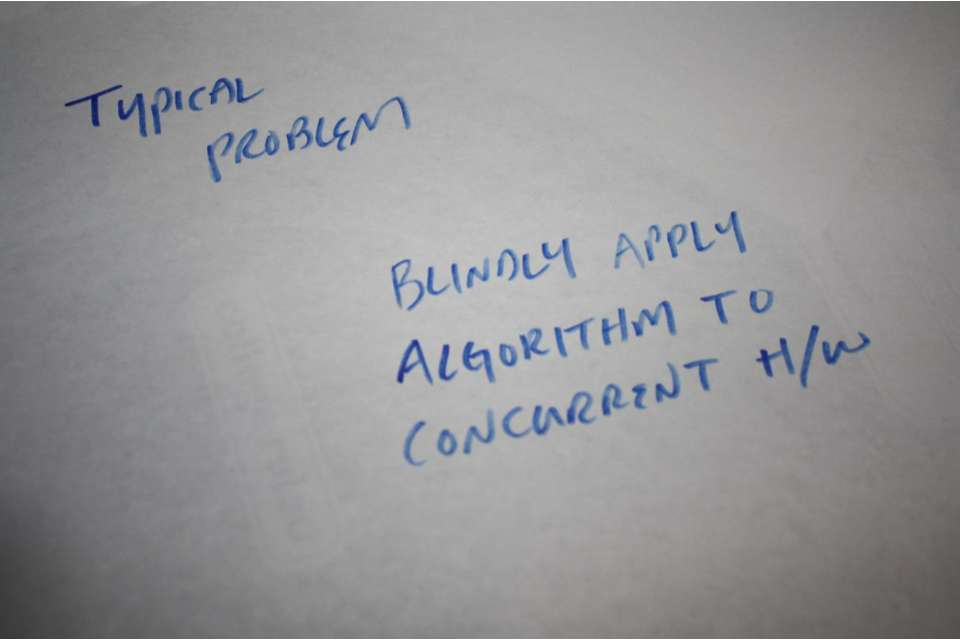 TYPICAL
PROBLEM
BLINDLY APPLY
ALGORITHM TO
CONCURRENT H/W